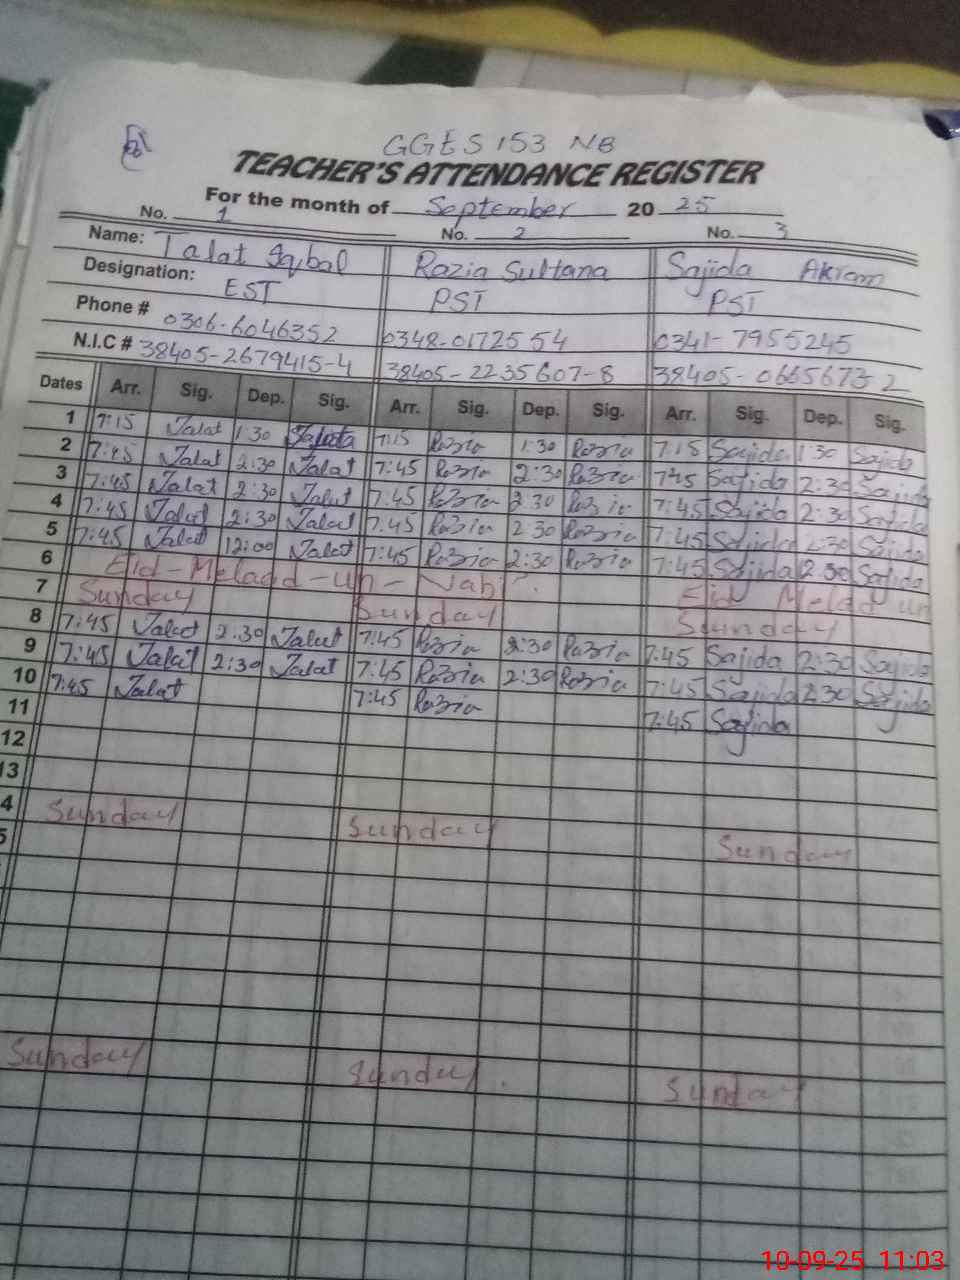 GGES 153 NB
TEACHER'S ATTENDANCE REGISTER
For the month of September 20 25
No. 1 No. 2 No. 3
Name: Talat Iqbal Razia Sultana Sajida Akram
Designation: EST PST PST
Phone # 0306-6046352 0348-0172554 0341-7955245
N.I.C # 38405-2679415-4 38405-2235607-8 38405-0665673-2
Dates Arr. Sig. Dep. Sig. Arr. Sig. Dep. Sig. Arr. Sig. Dep. Sig.
1 7:15 Talat 1:30 7:15 Razia 1:30 Razia 7:15 Sajida 1:30 Sajida
2 7:45 Talat 2:30 Talat 7:45 Razia 2:30 Razia 7:45 Sajida 2:30 Sajida
3 7:45 Talat 2:30 Talat 7:45 Razia 2:30 Razia 7:45 Sajida 2:30 Sajida
4 7:45 Talat 2:30 Talat 7:45 Razia 2:30 Razia 7:45 Sajida 2:30 Sajida
5 7:45 Talat 12:00 Talat 7:45 Razia 2:30 Razia 7:45 Sajida 2:30 Sajida
6 Eid-Melaad-un-Nabi Eid Melad un
7 Sunday Sunday Sunday
8 7:45 Talat 2:30 Talat 7:45 Razia 2:30 Razia 7:45 Sajida 2:30 Sajida
9 7:45 Talat 2:30 Talat 7:45 Razia 2:30 Razia 7:45 Sajida 2:30 Sajida
10 7:45 Talat 7:45 Razia 7:45 Sajida
11
12
13
4 Sunday Sunday Sunday
5
Sunday Sunday Sunday
10-09-25 11:03